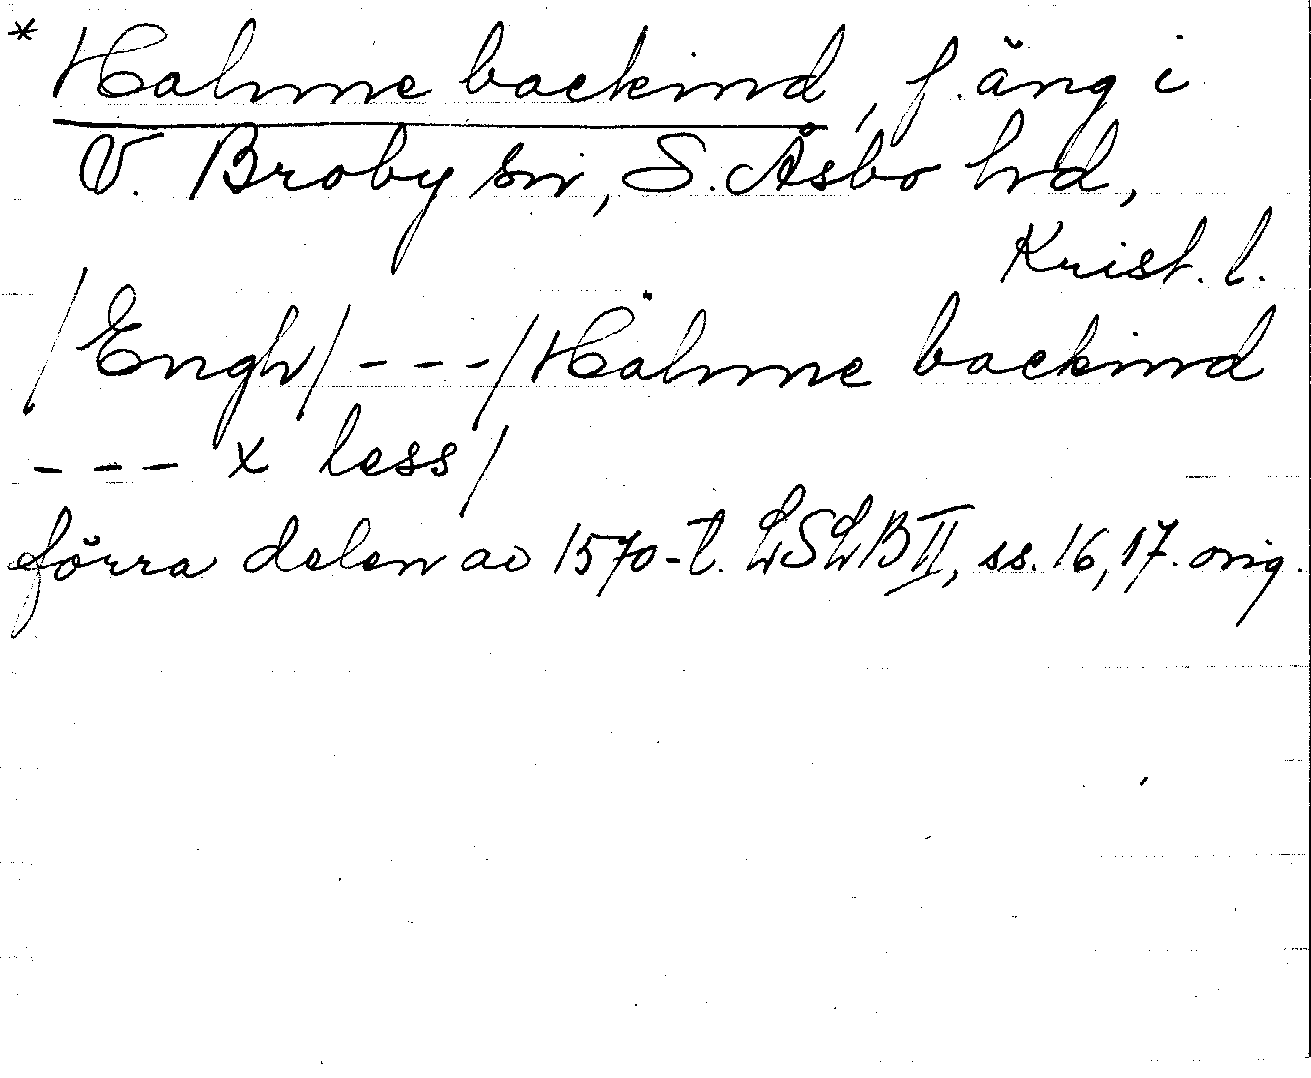 * Halmne backind, f. äng i
V. Broby sn, S. Åsbo hd,
Krist. l.
/Engh/ - - - /Halmne backind
- - - x less/
förra delen av 1570-t. LSLB II, ss. 16, 17. orig.